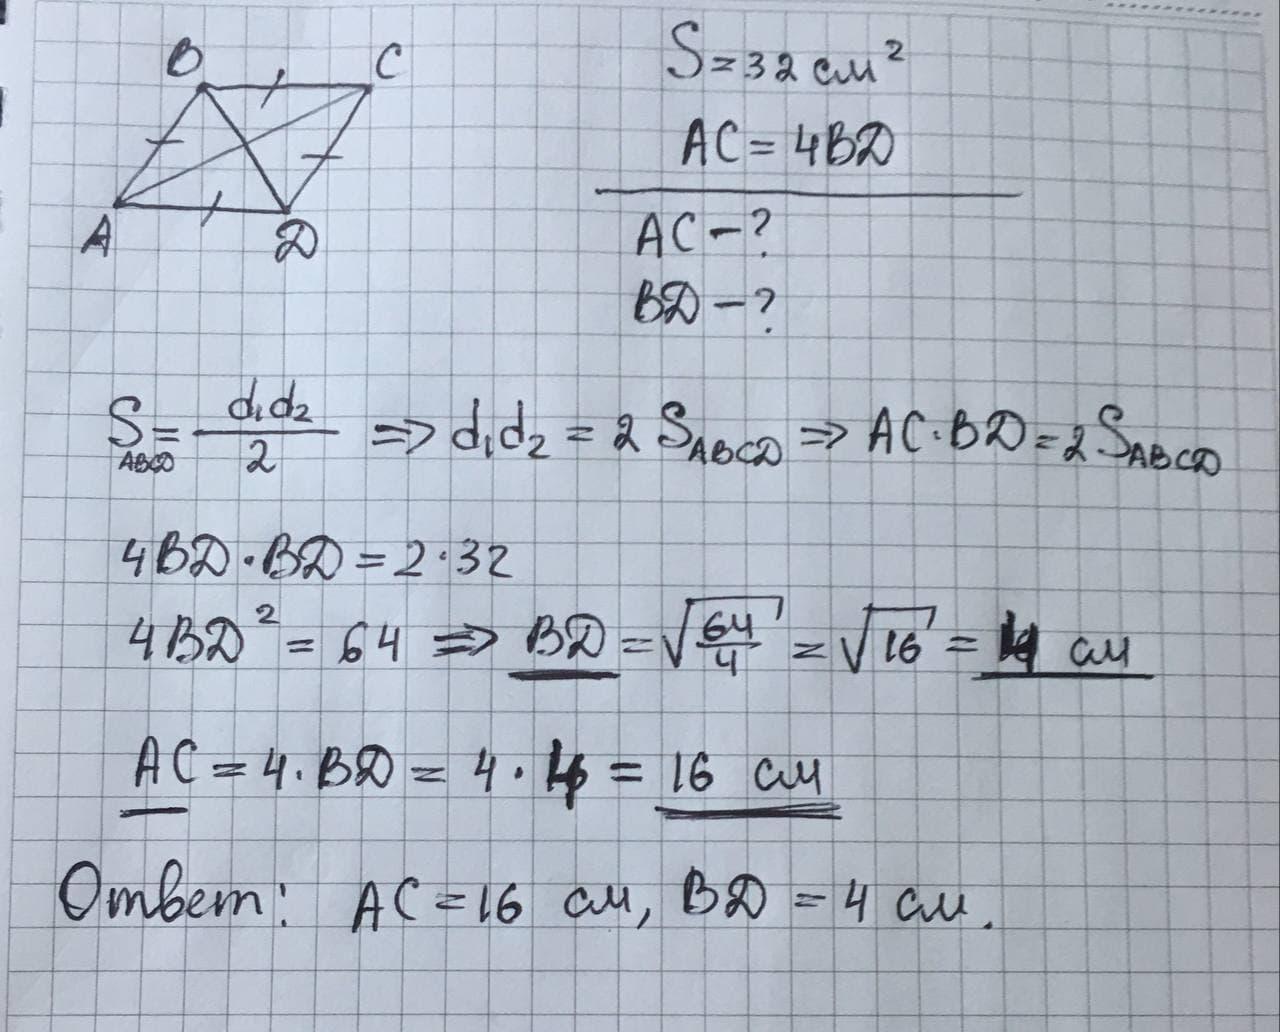 B C
A D
S = 32 см²
AC = 4BD
AC - ?
BD - ?
S_ABCD = d₁d₂/2 => d₁d₂ = 2 S_ABCD => AC · BD = 2 S_ABCD
4BD · BD = 2 · 32
4BD² = 64 => BD = √(64/4) = √16 = 4 см
AC = 4 · BD = 4 · 4 = 16 см
Ответ: AC = 16 см, BD = 4 см.